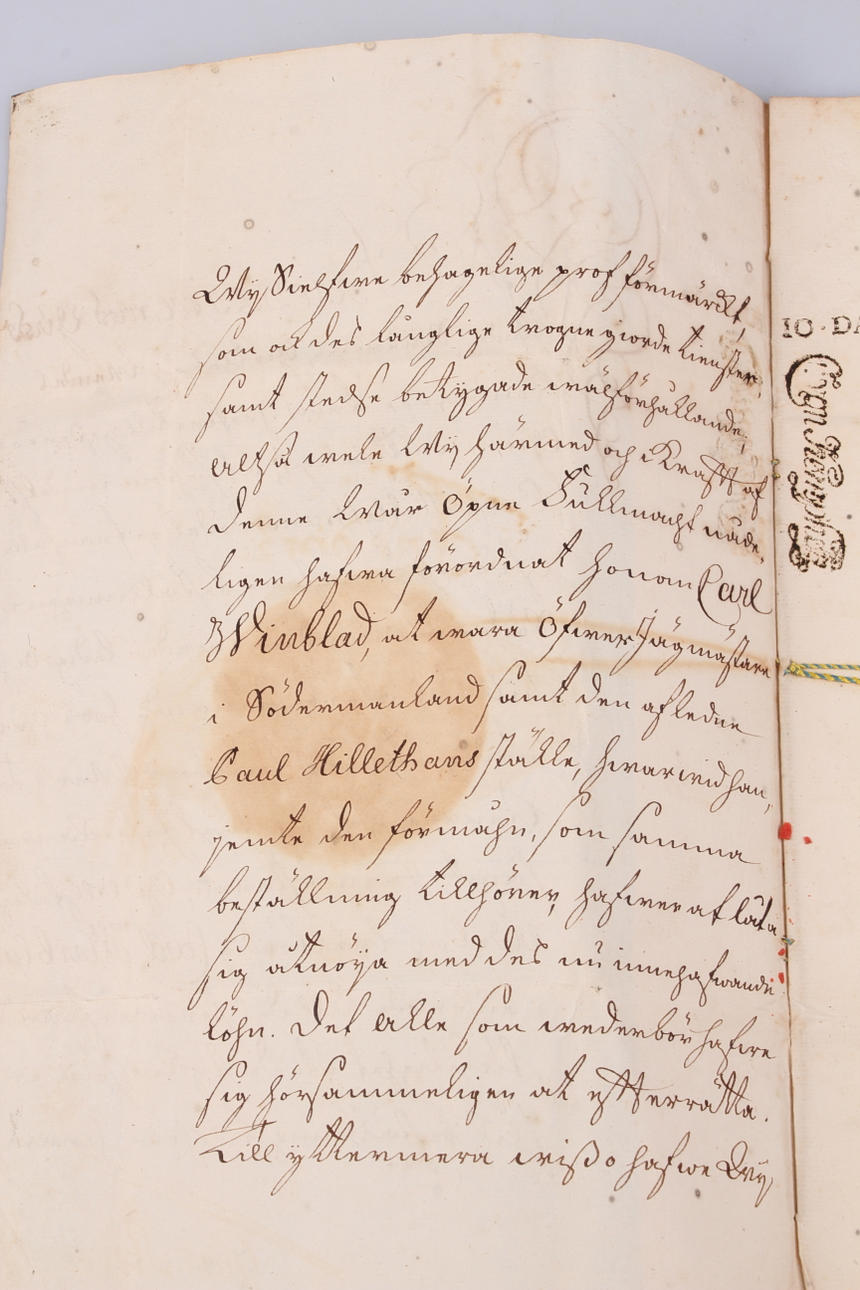 Wy Sielfwe behagelige prof förmärckt,
som ock des långlige trogne giorde tienster,
samt stedse betygade wälförhållande;
Altså wele Wy härmed och i Krafft af
denne Wår Öpne Fullmacht nåde-
ligen hafwa förordnat honom Carl
Winblad, at wara Öfwer Jägmästare
i Södermanland samt den afledne
Paul Hillethans ställe, hwarwid han,
jemte den förmåhn, som samma
beställning tillhörer, hafwer at låta
sig åtnöya med des nu innehafwande
löhn. Det Alle som wederbör hafwe
sig hörsammeligen at effterrätta.
Till yttermera wißo hafwe Wy
IO·DA